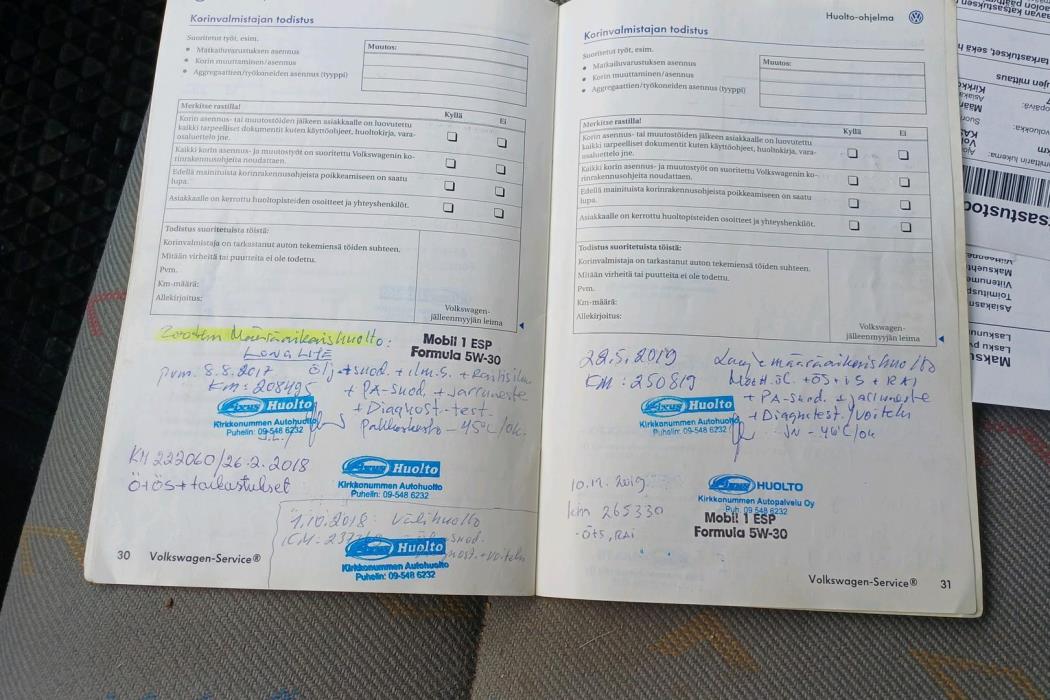 Korinvalmistajan todistus
Suoritetut työt, esim.
• Matkailuvarustuksen asennus
• Korin muuttaminen/asennus
• Aggregaattien/työkoneiden asennus (tyyppi)
Muutos:
Merkitse rastilla!
Kyllä
Ei
Korin asennus- tai muutostöiden jälkeen asiakkaalle on luovutettu
kaikki tarpeelliset dokumentit kuten käyttöohjeet, huoltokirja, vara-
osaluettelo jne.
Kaikki korin asennus- ja muutostyöt on suoritettu Volkswagenin ko-
rinrakennusohjeita noudattaen.
Edellä mainituista korinrakennusohjeista poikkeamiseen on saatu
lupa.
Asiakkaalle on kerrottu huoltopisteiden osoitteet ja yhteyshenkilöt.
Todistus suoritetuista töistä:
Korinvalmistaja on tarkastanut auton tekemiensä töiden suhteen.
Mitään virheitä tai puutteita ei ole todettu.
Pvm.
Km-määrä:
Allekirjoitus:
Volkswagen-
jälleenmyyjän leima
Määräaikaishuolto:
LONGLIFE
Mobil 1 ESP
Formula 5W-30
pvm. 8.8.2017
KM: 208495
+ PA-suod. + jarruneste
+ Diagnost.-test.
-45°C/ok.
Huolto
Kirkkonummen Autohuolto
Puhelin: 09-548 6232
KM 222060/26.2.2018
Ö+ÖS+tarkastukset
Huolto
Kirkkonummen Autohuolto
Puhelin: 09-548 6232
1.10.2018: Välihuolto
+voitelu
Huolto
Kirkkonummen Autohuolto
Puhelin: 09-548 6232
30 Volkswagen-Service®
Huolto-ohjelma
Korinvalmistajan todistus
Suoritetut työt, esim.
• Matkailuvarustuksen asennus
• Korin muuttaminen/asennus
• Aggregaattien/työkoneiden asennus (tyyppi)
Muutos:
Merkitse rastilla!
Kyllä
Ei
Korin asennus- tai muutostöiden jälkeen asiakkaalle on luovutettu
kaikki tarpeelliset dokumentit kuten käyttöohjeet, huoltokirja, vara-
osaluettelo jne.
Kaikki korin asennus- ja muutostyöt on suoritettu Volkswagenin ko-
rinrakennusohjeita noudattaen.
Edellä mainituista korinrakennusohjeista poikkeamiseen on saatu
lupa.
Asiakkaalle on kerrottu huoltopisteiden osoitteet ja yhteyshenkilöt.
Todistus suoritetuista töistä:
Korinvalmistaja on tarkastanut auton tekemiensä töiden suhteen.
Mitään virheitä tai puutteita ei ole todettu.
Pvm.
Km-määrä:
Allekirjoitus:
Volkswagen-
jälleenmyyjän leima
22.5.2019 Laaje määräaikaishuolto
KM: 250819
+ PA-suod. + jarruneste
+ Diagn.test. / voitelu
-46°C/ok
Huolto
Kirkkonummen Autohuolto
Puhelin: 09-548 6232
km 265330
HUOLTO
Kirkkonummen Autopalvelu Oy
Puh. 09 548 6232
Mobil 1 ESP
Formula 5W-30
Volkswagen-Service® 31